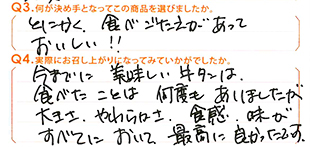 Q3.何が決め手となってこの商品を選びましたか。
とにかく、食べごたえがあって
おいしい!!
Q4.実際にお召し上がりになってみていかがでしたか。
今までに 美味しい牛タンは、
食べたことは 何度もありましたが
大きさ、やわらかさ、食感、味が
すべてに おいて、最高に良かったです。